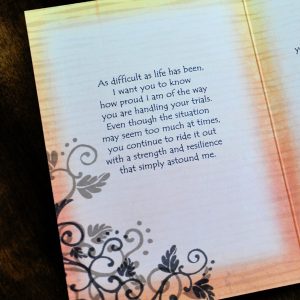 As difficult as life has been,
I want you to know
how proud I am of the way
you are handling your trials.
Even though the situation
may seem too much at times,
you continue to ride it out
with a strength and resilience
that simply astound me.